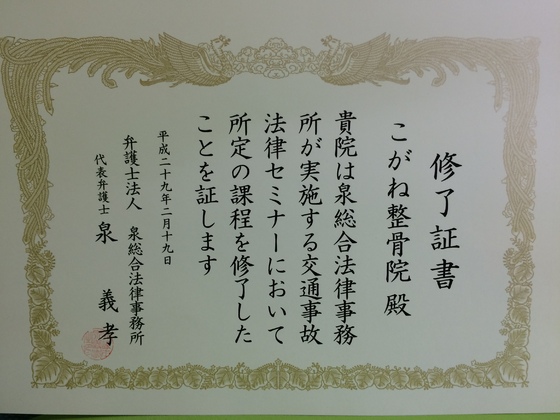 修了証書
こがね整骨院 殿
貴院は泉総合法律事務
所が実施する交通事故
法律セミナーにおいて
所定の課程を修了した
ことを証します
平成二十九年二月十九日
弁護士法人 泉総合法律事務所
代表弁護士 泉 義孝